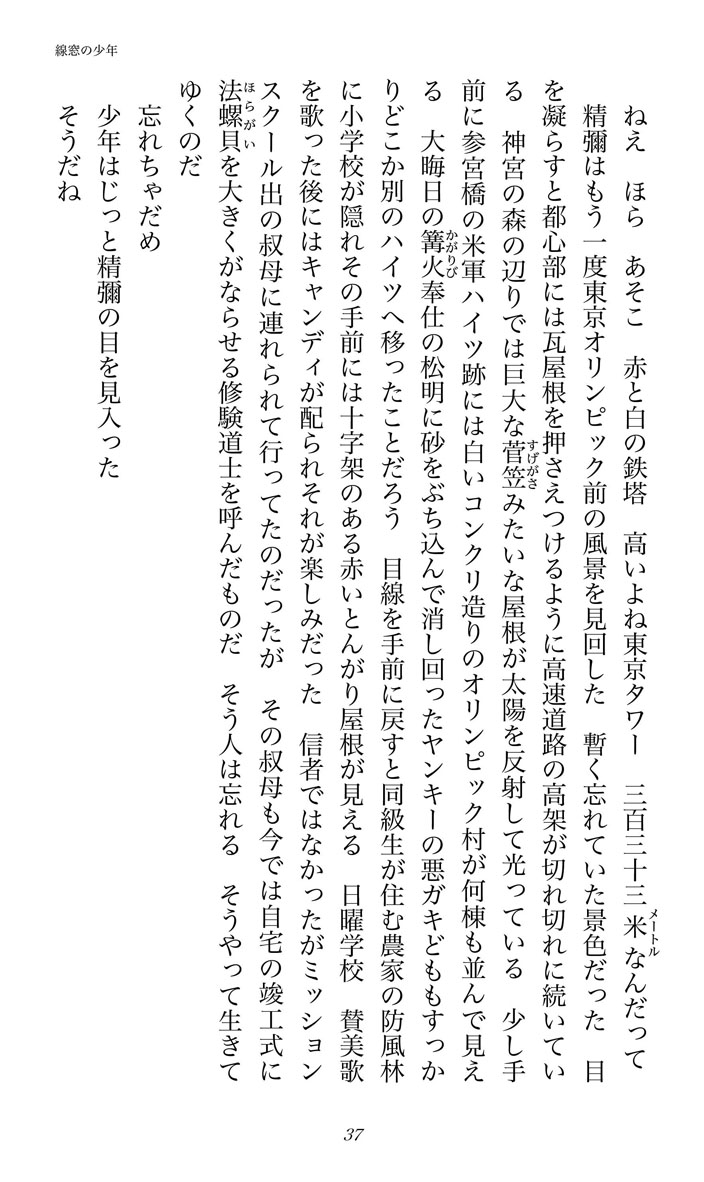 線窓の少年
ねえ　ほら　あそこ　赤と白の鉄塔　高いよね東京タワー　三百三十三米なんだって
メートル
精彌はもう一度東京オリンピック前の風景を見回した　暫く忘れていた景色だった　目
を凝らすと都心部には瓦屋根を押さえつけるように高速道路の高架が切れ切れに続いてい
る　神宮の森の辺りでは巨大な菅笠みたいな屋根が太陽を反射して光っている　少し手
すげがさ
前に参宮橋の米軍ハイツ跡には白いコンクリ造りのオリンピック村が何棟も並んで見え
る　大晦日の篝火奉仕の松明に砂をぶち込んで消し回ったヤンキーの悪ガキどももすっか
かがりび
りどこか別のハイツへ移ったことだろう　目線を手前に戻すと同級生が住む農家の防風林
に小学校が隠れその手前には十字架のある赤いとんがり屋根が見える　日曜学校　賛美歌
を歌った後にはキャンディが配られそれが楽しみだった　信者ではなかったがミッション
スクール出の叔母に連れられて行ってたのだったが　その叔母も今では自宅の竣工式に
法螺貝を大きくがならせる修験道士を呼んだものだ　そう人は忘れる　そうやって生きて
ほらがい
ゆくのだ
忘れちゃだめ
少年はじっと精彌の目を見入った
そうだね
37